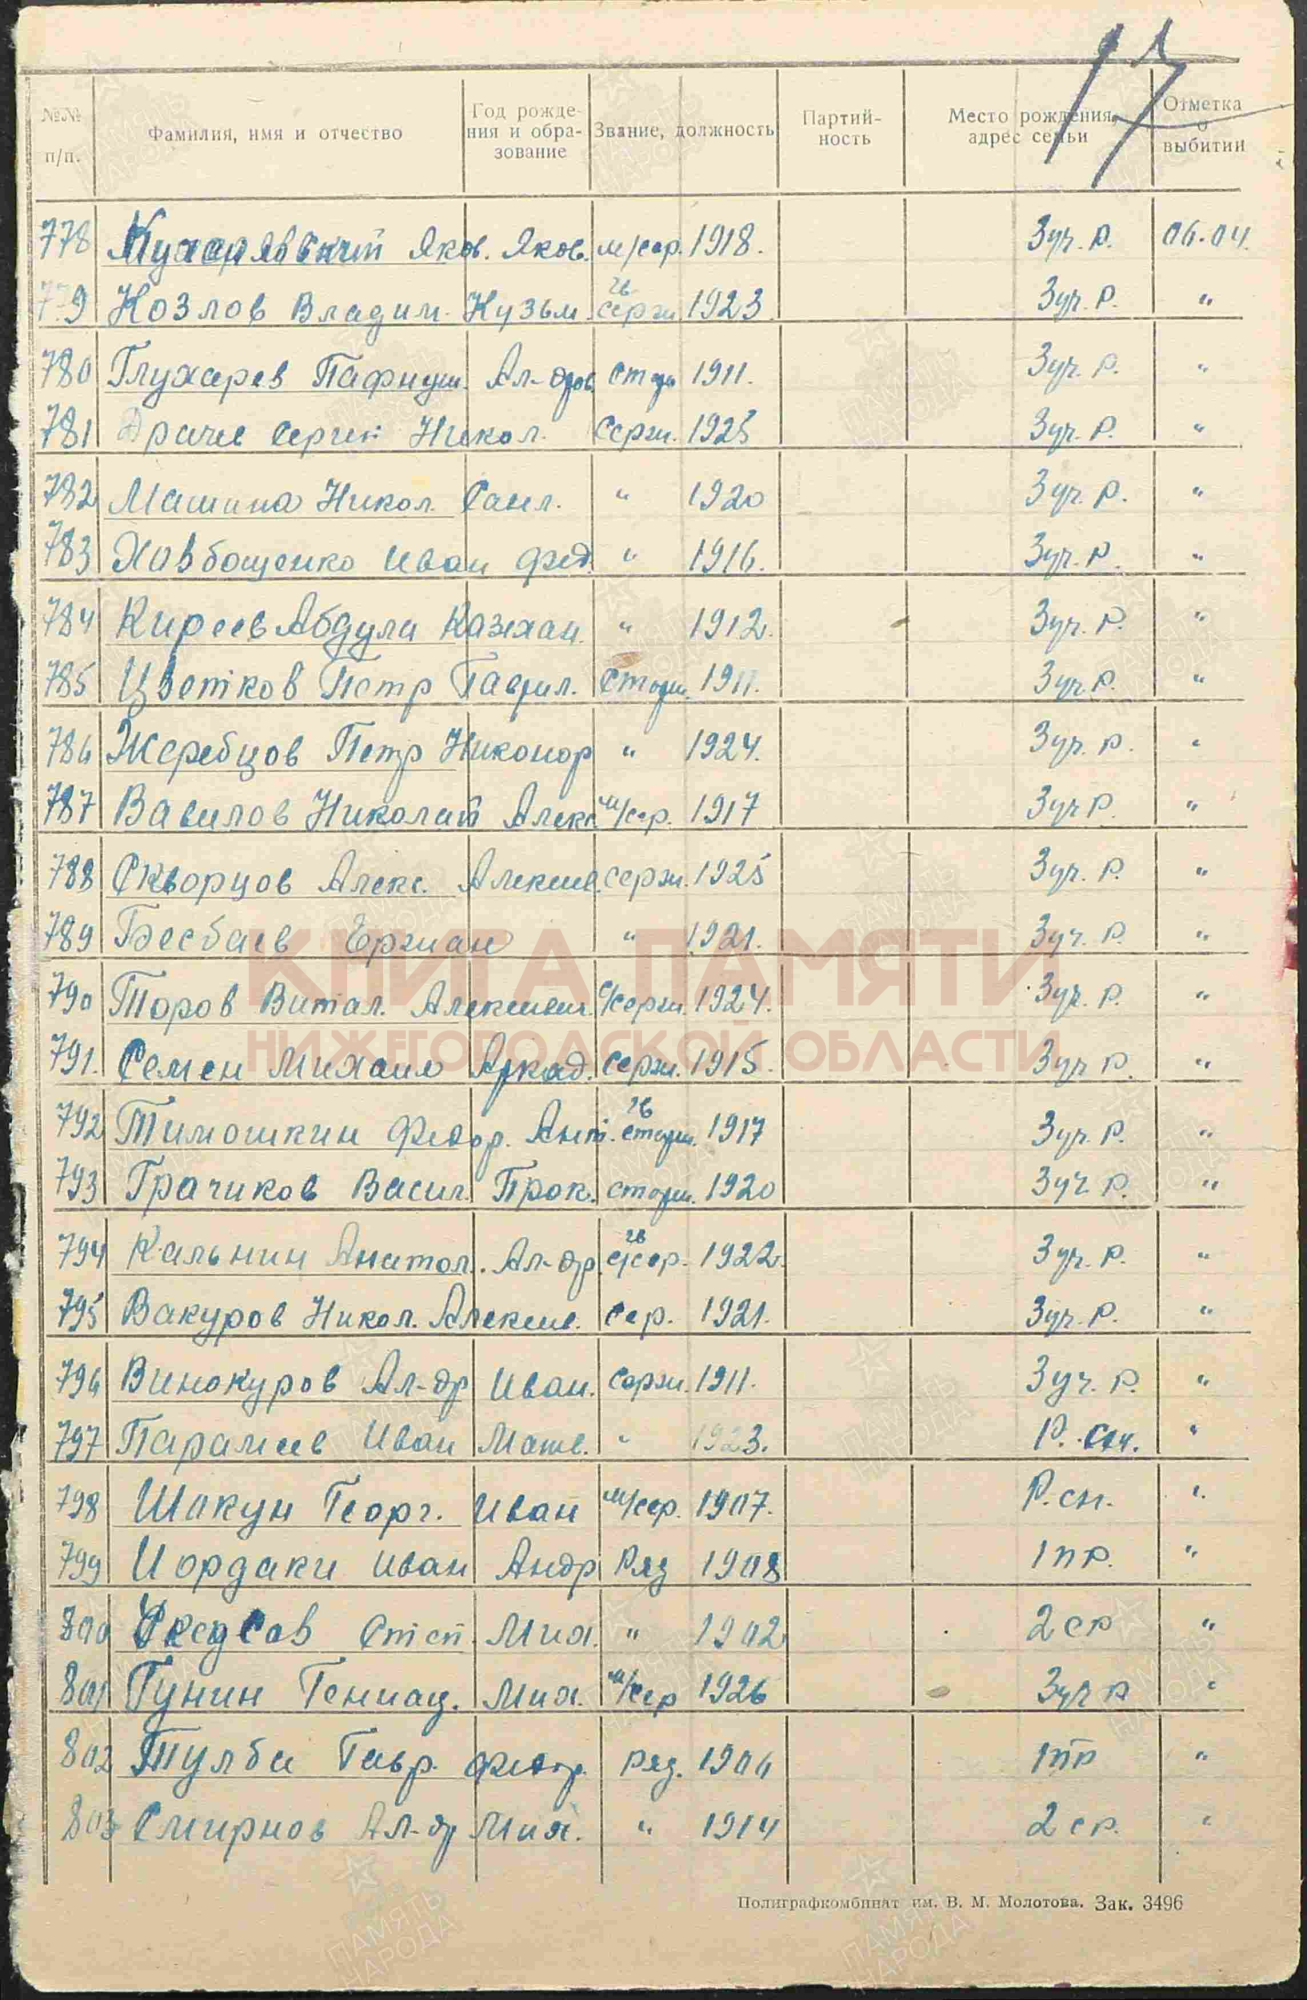 17
№№ п/п. Фамилия, имя и отчество Год рожде- ния и обра- зование Звание, должность Партий- ность Место рождения, адрес семьи Отметка о выбитии
778 Яков. Яков. м/сер. 1918. 3 уч. р. 06.04.
779 Козлов Владим. Кузьм гв серж 1923 3 уч. р. "
780 Глухарев Пафнут. Ал-дров 1911. 3 уч. р. "
781 Сергей Никол. Серж. 1925 3 уч. р. "
782 Машина Никол. " 1920 3 уч. р. "
783 Иван Фед. " 1916. 3 уч. р. "
784 Киреев Абдула Казихан. " 1912. 3 уч. р. "
785 Цветков Петр Гаврил. 1911. 3 уч р. "
786 Жеребцов Петр Никонор " 1924. 3 уч. р. "
787 Вавилов Николай Алекс м/сер. 1917 3 уч р. "
788 Скворцов Алекс. Алексее. серж. 1925 3 уч. р. "
789 Бесбаев Ержман " 1921. 3 уч. р. "
790 Торов Витал. Алексеев. с/серж. 1924. 3 уч. р. "
791. Семен Михаил Аркад. серж. 1915. 3 уч р. "
792 Тимошкин Федор. Ант. гв 1917 3 уч. р. "
793 Грачиков Васил. Прок. 1920 3 уч. р. "
794 Кальнин Анатол. Ал-др. гв с/сер. 1922. 3 уч. р. "
795 Вакуров Никол. Алексее. сер. 1921. 3 уч. р. "
796 Винокуров Ал-др Иван. серж. 1911. 3 уч. р. "
797 Парамеев Иван Матв. " 1923. Р. сн. "
798 Шакун Георг. Иван м/сер. 1907. Р. сн. "
799 Иордаки Иван Андр Ряд 1908 1 пр. "
800 Степ. Мих. " 1902 2 ср "
801 Гунин Гениад. Мих. м/сер 1926 3 уч р "
802 Тулба Гавр. Федор. ряд. 1906 1 пр "
803 Смирнов Ал-др Мих. " 1914 2 ср. "
КНИГА ПАМЯТИ
НИЖЕГОРОДСКОЙ ОБЛАСТИ
Полиграфкомбинат им. В. М. Молотова. Зак. 3496